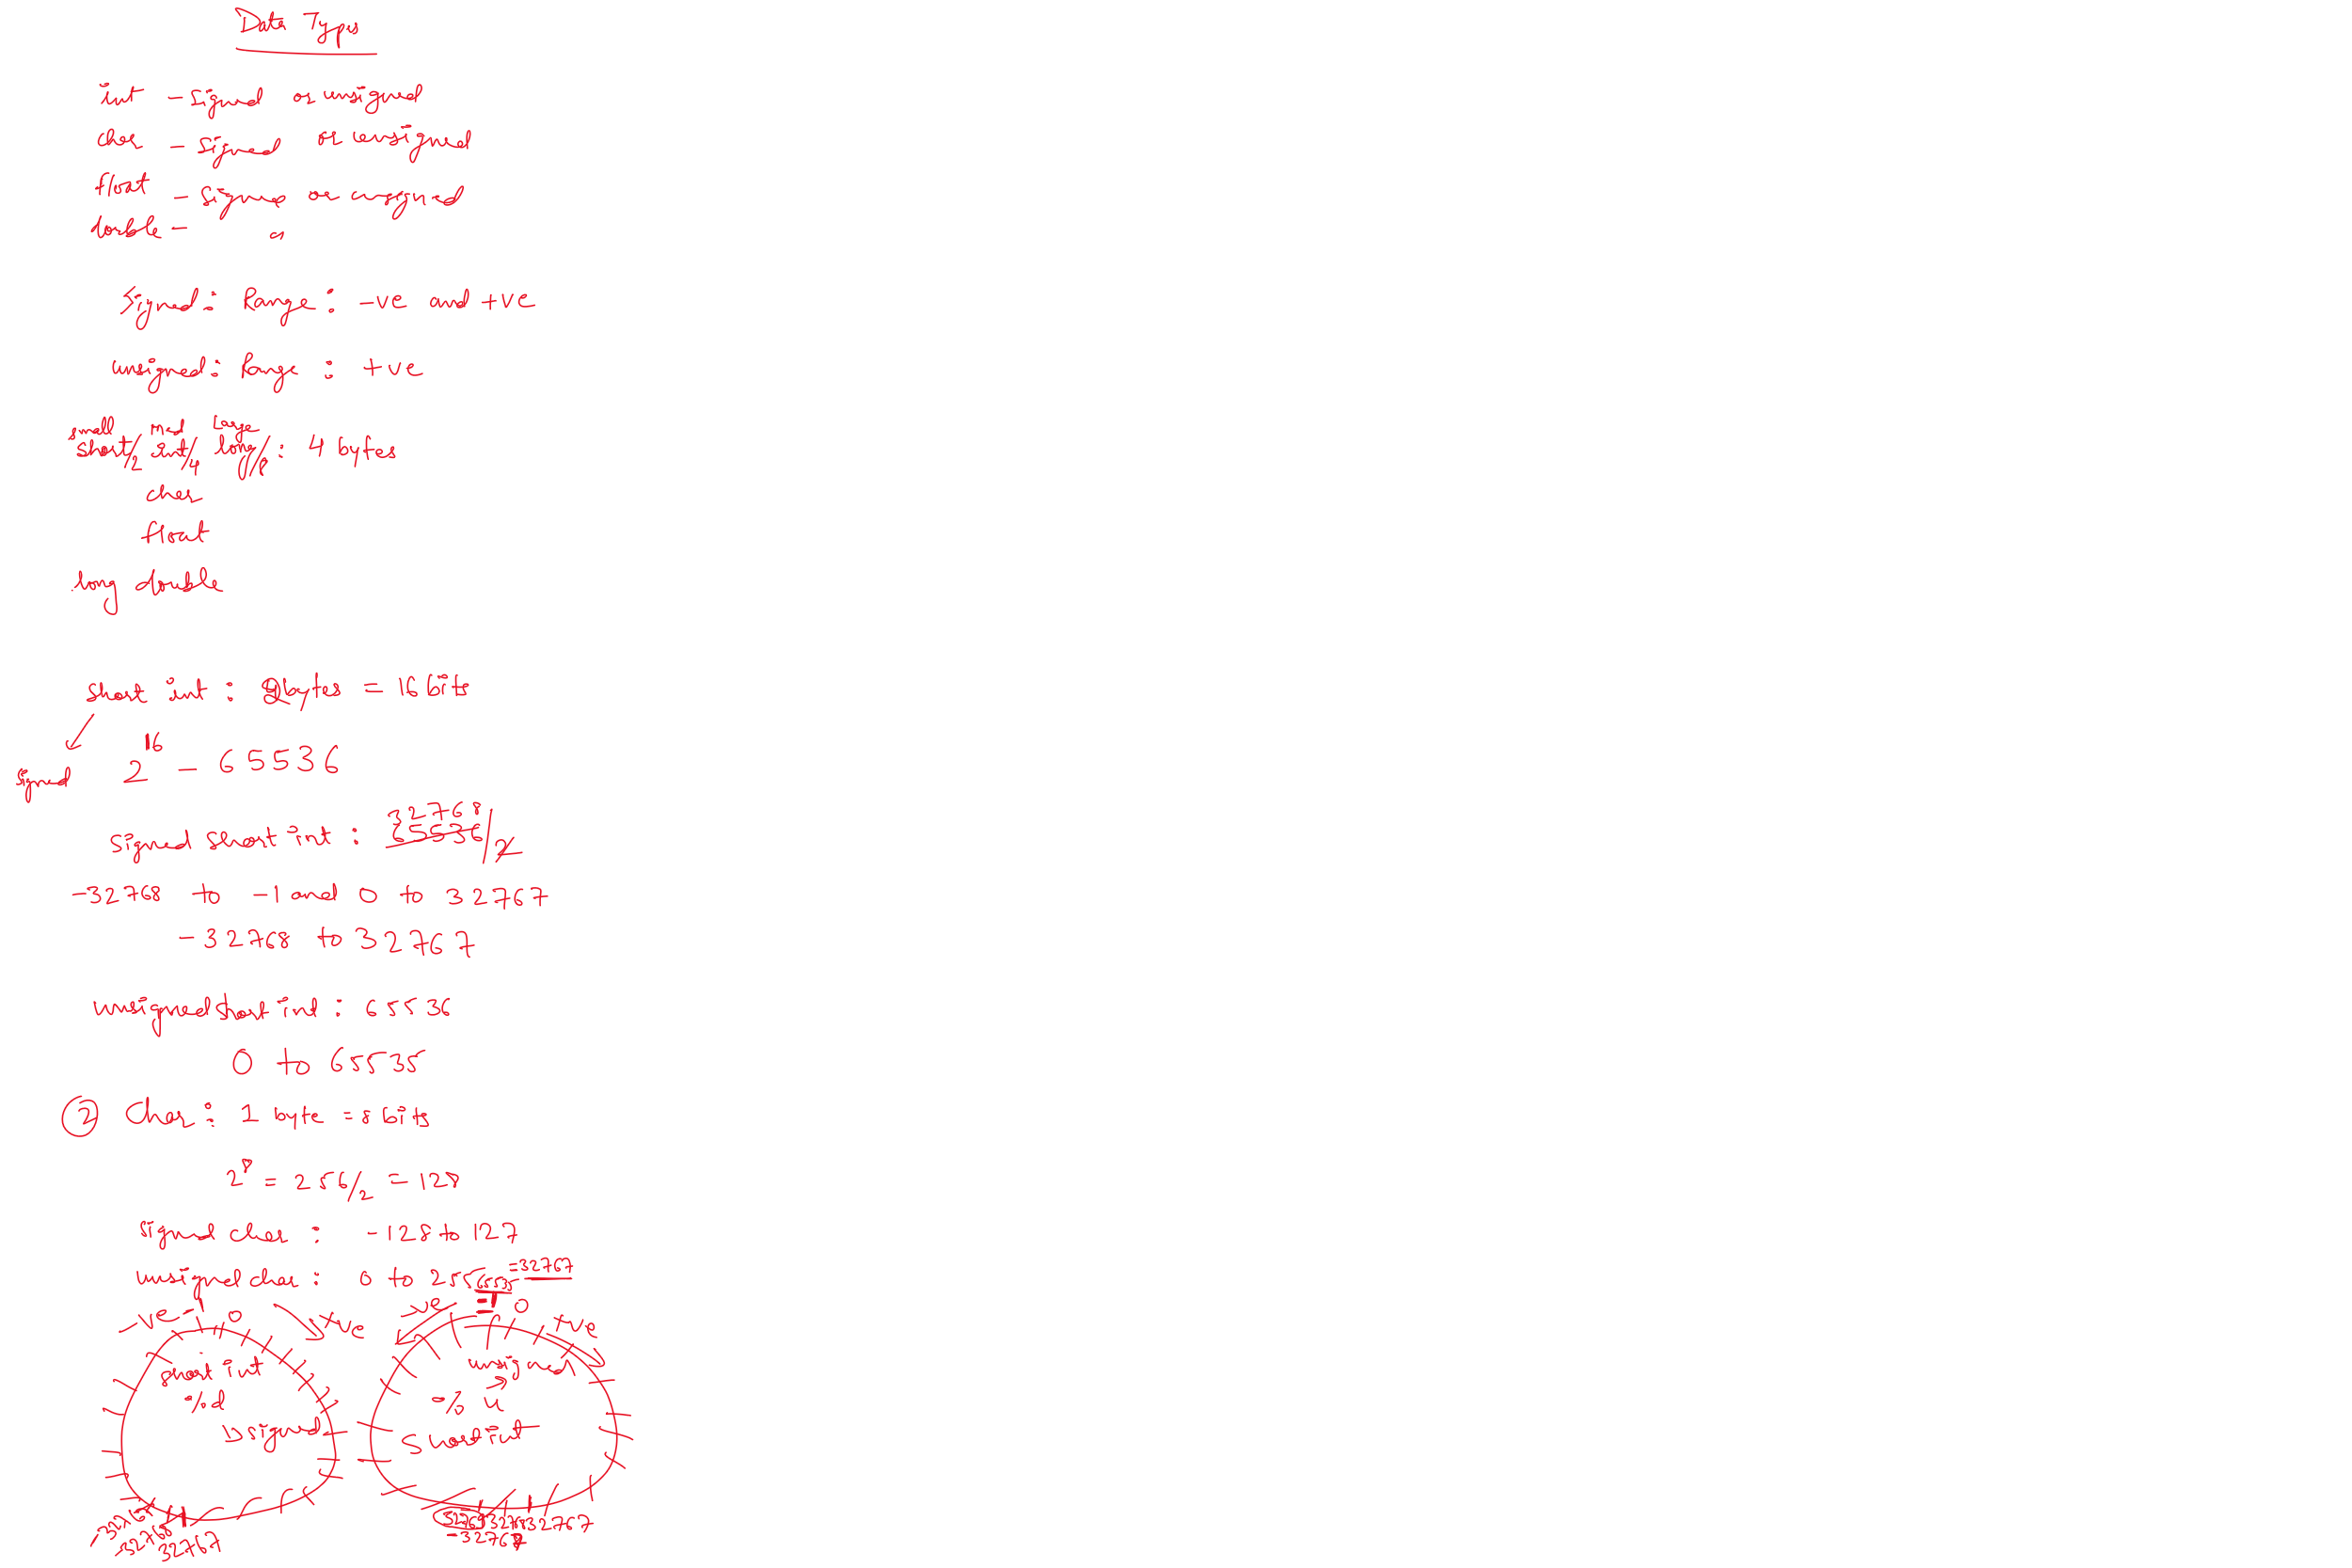 Data Types
int - signed or unsigned
char - signed or unsigned
float - signed or unsigned
double - "
Signed : Range : -ve and +ve
unsigned : Range : +ve
small Med Large
short/2 int/4 long/8 : 4 bytes
char
float
long double
short int : 2bytes = 16 bits
signed 2^16 - 65536
32768
signed short int : 65536/2
-32768 to -1 and 0 to 32767
-32768 to 32767
unsigned short int : 65536
0 to 65535
② Char : 1 byte = 8 bits
2^8 = 256/2 = 128
signed char : -128 to 127
unsigned char : 0 to 255
65535 = 32767
-ve -1 0 +ve
-ve = -1 0 +ve
short int
%d
signed
unsigned
% u
short int
-32767
-32768
32767
32769 32768 32767